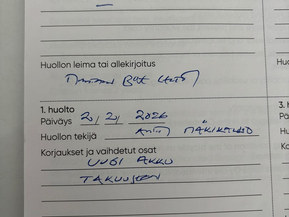 Huollon leima tai allekirjoitus
1. huolto
Päiväys 20/2/ 2026
Huollon tekijä Antti
Korjaukset ja vaihdetut osat
UUSI AKKU
TAKUUSEEN
3. h
Pä
Hu
Ko